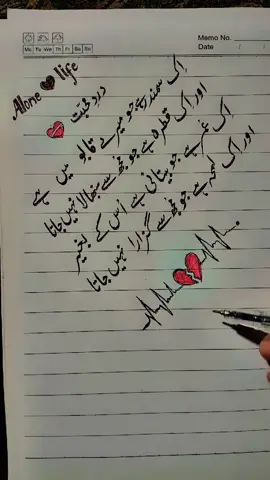 Memo No.
Date / /
Mo Tu We Th Fr Sa Su
Alone life
دردِ محبت
اِک سمندر ہے جو میرے قابو میں ہے
اور اک قطرہ ہے جو مجھ سے سنبھالا نہیں جاتا
اِک عمر ہے جو بیتانی ہے اُس کے بغیر
اور اک لمحہ ہے جو مجھ سے گزارا نہیں جاتا